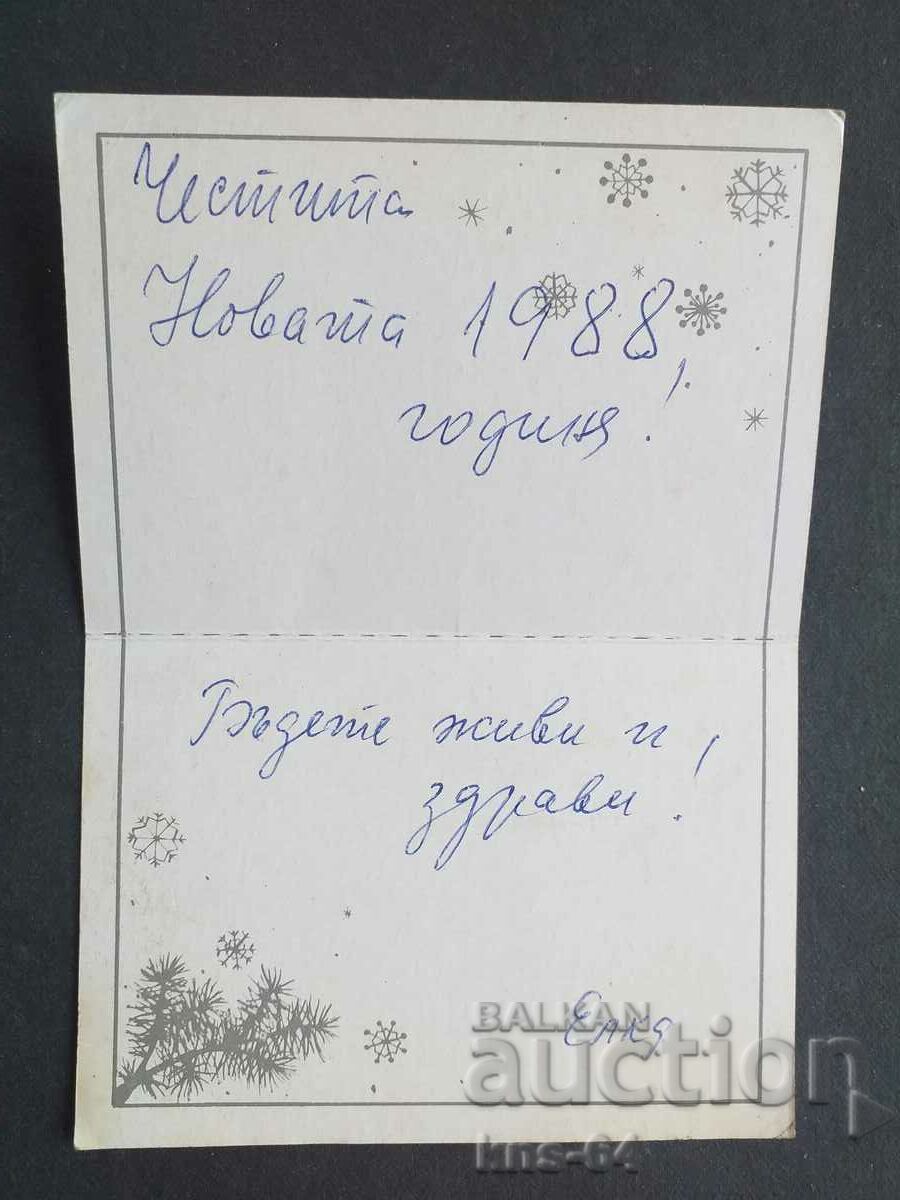 Честита
Новата 1988
година!
Бъдете живи и
здрави!
Елка
BALKAN
auction
kns-64